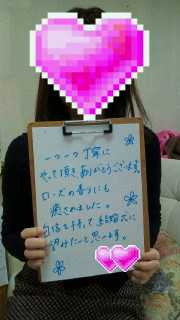 一つ一つ丁寧に
やって頂きありがとうございます。
ローズの香りにも
癒されました。
自信を持って結婚式に
望みたいと思います。